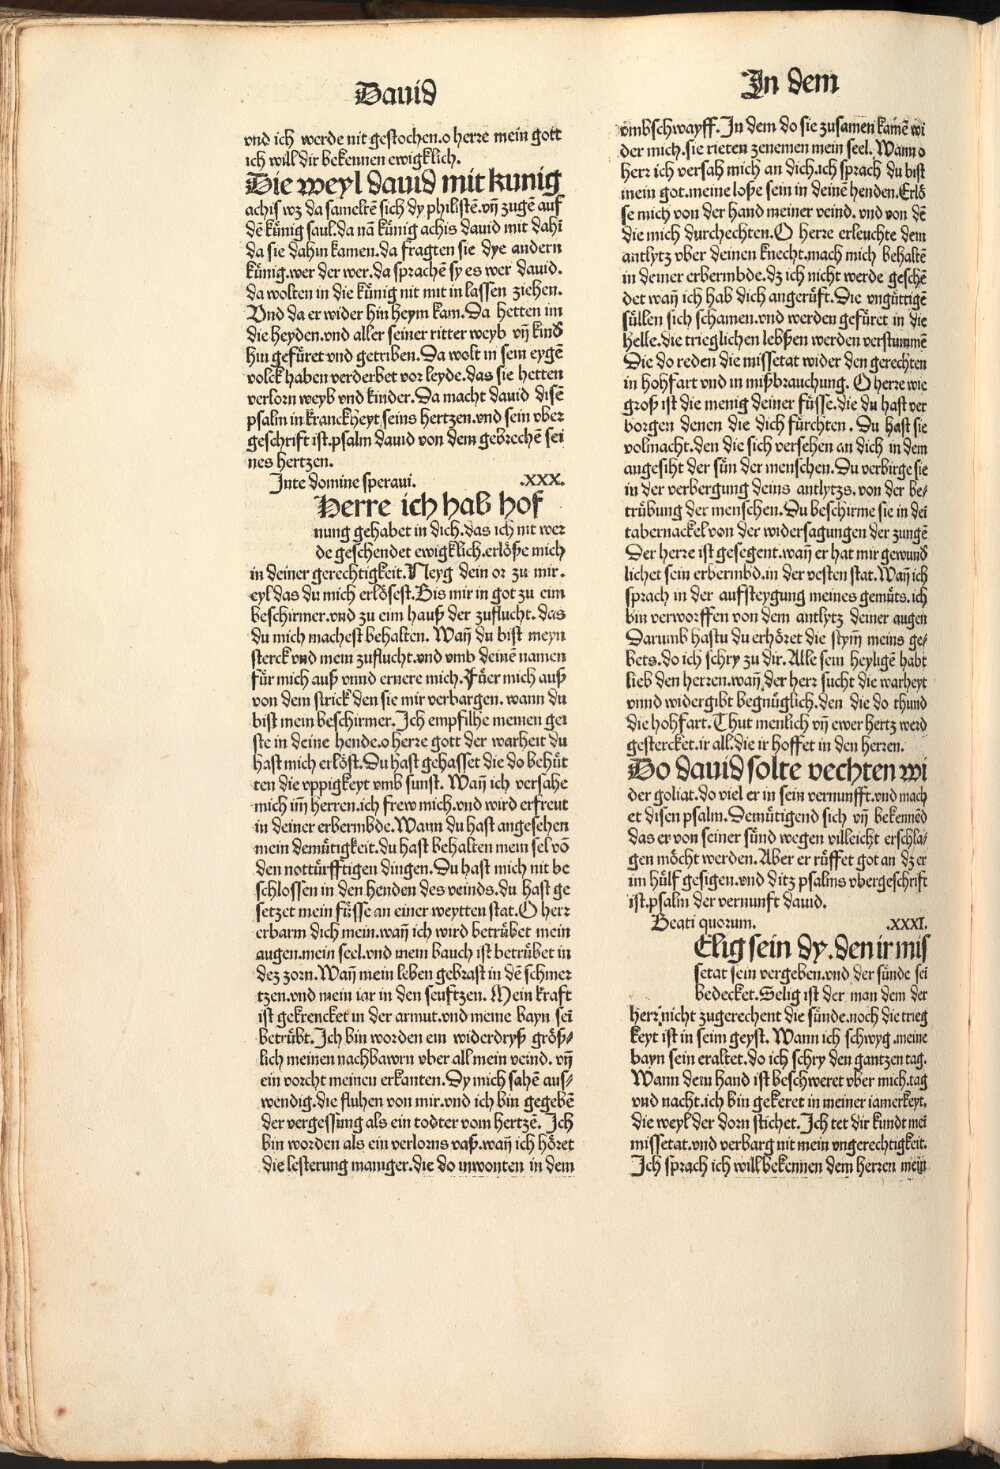 Dauid
vnd ich werde nit gestochen.o herre mein gott
ich will dir bekennen ewigklich.
Die weyl dauid mit kunig
achis wz da sameltē sich dy philistē.vn̄ zugē auf
dē künig saul.da nā künig achis dauid mit dahī
da sie dahin kamen.da fragten sie dye andern
künig.wer der wer.da sprachē sy es wer dauid.
da wolten in die künig nit mit in lassen ziehen.
Vnd da er wider hin heym kam.Da hetten im
die heyden.vnd aller seiner ritter weyb vn̄ kind
hin gefüret vnd getriben.Da wolt in sein eygē
volck haben verderbet vor leyde.das sie hetten
verlorn weyb vnd kinder.Da macht dauid disē
psalm in kranckheyt seins hertzen.vnd sein vber
geschrift ist.psalm dauid von dem gebrechē sei
nes hertzen.
Inte domine speraui. .XXX.
Herre ich hab hof
nung gehabet in dich.das ich nit wer
de geschendet ewigklich.erlöße mich
in deiner gerechtigkeit.Neyg dein or zu mir.
eyl das du mich erlösest.Bis mir in got zu eim
beschirmer.vnd zu eim hauß der zuflucht.das
du mich machest behalten. Wan̄ du bist meyn
sterck vnd mein zuflucht.vnd vmb deinē namen
für mich auß vnnd ernere mich.Füer mich auß
von dem strick den sie mir verbargen. wann du
bist mein beschirmer.Ich empfilhe meinen gei
ste in deine hende.o herre gott der warheit du
hast mich erlöst.Du hast gehasset die do behüt
ten die vppigkeyt vmb sunst. Wan̄ ich versahe
mich im̄ herren.ich frew mich.vnd wird erfreut
in deiner erbermbde.Wann du hast angesehen
mein demütigkeit.du hast behalten mein sel vō
den nottürfftigen dingen.Du hast mich nit be
schlossen in den henden des veinds.du hast ge
setzet mein füsse an einer weytten stat.O herr
erbarm dich mein.wan̄ ich wird betrübet mein
augen.mein seel.vnd mein bauch ist betrübet in
dez zorn.Wan̄ mein leben gebrast in dē schmer
tzen.vnd mein iar in den seuftzen. Mein kraft
ist gekrencket in der armut.vnd meine bayn sei
betrübt.Ich bin worden ein widerdryß größ⸗
lich meinen nachbawrn vber all mein veind. vn̄
ein vorcht meinen erkanten.Dy mich sahē aus⸗
wendig.die fluhen von mir.vnd ich bin gegebē
der vergessung als ein todter vom hertzē. Ich
bin worden als ein verlorns vaß.wan̄ ich höret
die lesterung maniger.die do inwonten in dem
In dem
vmbschwayff.In dem do sie zusamen kamē wi
der mich.sie rieten zenemen mein seel. Wann o
herr ich versah mich an dich.ich sprach du bist
mein got.meine loße sein in deinē henden.Erlö
se mich von der hand meiner veind. vnd von dē
die mich durchechten.O herre erleuchte dem
antlytz vber deinen knecht.mach mich behaltē
in deiner erbermbde.dz ich nicht werde geschē
det wan̄ ich hab dich angerüft.Die vngüttigē
süllen sich schamen.vnd werden gefüret in die
helle.die trieglichen lebßen werden verstummē
Die do reden die missetat wider den gerechten
in hohfart vnd in mißbrauchung. O herre wie
groß ist die menig deiner süsse.die du hast ver
borgen denen die dich fürchten. Du hast sie
volmacht.den die sich versehen an dich in dem
angesiht der sün der menschen.Du verbirge sie
in der verbergung deins antlytzs.von der be⸗
trübung der menschen.Du beschirme sie in dei
tabernackel von der widersagungen der zungē
Der herre ist gesegent.wan̄ er hat mir gewund
lichet sein erbermbd.in der vesten stat.Wan̄ ich
sprach in der aufsteygung meines gemüts.ich
bin verworffen von dem antlytz deiner augen
Darumb hastu du erhöret die stym̄ meins ge⸗
bets.do ich schry zu dir.Alle sein heyligē habt
lieb den herren.wan̄ der herr sucht die warheyt
vnnd widergibt begnüglich.den die do thund
die hohfart.Thut menlich vn̄ ewer hertz werd
gestercket.ir all.die ir hoffet in den herren.
Do dauid solte vechten wi
der goliat.do viel er in sein vernunfft.vnd mach
et disen psalm.Demütigend sich vn̄ bekennēd
das er von seiner sünd wegen villeicht erschla⸗
gen möcht werden.Aber er rüffet got an dz er
im hülf gesigen.vnd ditz psalms vbergeschrift
ist.psalm der vernunft dauid.
Beati quorum. .XXXI.
Elig sein dy.den ir mis
setat sein vergeben.vnd der sünde sei
bedecket.Selig ist der man dem der
herr nicht zugerechent die sünde.noch die trieg
keyt ist in seim geyst. Wann ich schwyg.meine
bayn sein eraltet.do ich schry den gantzen tag.
Wann dem hand ist beschweret vber mich.tag
vnd nacht.ich bin gekeret in meiner iamerkeyt.
die weyl der dorn stichet.Ich tet dir kundt mei
missetat.vnd verbarg nit mein vngerechtigkeit.
Ich sprach ich will bekennen dem herren mein